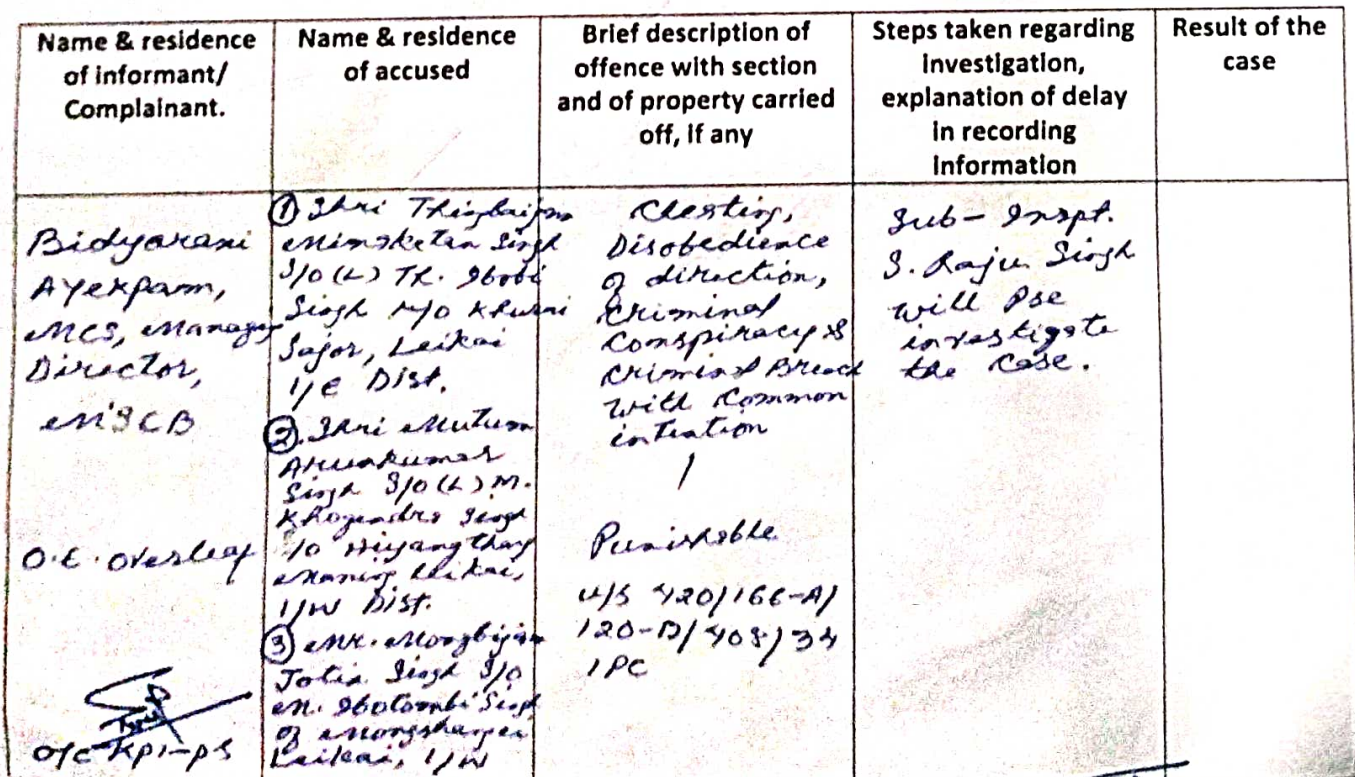 Name & residence
of informant/
Complainant.
Name & residence
of accused
Brief description of
offence with section
and of property carried
off, if any
Steps taken regarding
investigation,
explanation of delay
in recording
information
Result of the
case
Bidyarani
Ayekpam,
MCS, Managing
Director,
MSCB
O.C. overleaf
O/C KPI-PS
① Shri Thingbaijam
Minaketan Singh
S/O (L) Th. Ibobi
Singh r/o Khurai
Sajor, Leikai
I/E Dist.
②. Shri Mutum
Arunkumar
Singh S/O (L) M.
Khogendra Singh
/o Hiyangthang
Maning Leikai,
I/W Dist.
③ Mr. Mongbijam
Jotin Singh S/O
M. Ibotombi Singh
of Mongshangei
Leikai, I/W
Cheating,
Disobedience
of direction,
Criminal
Conspiracy &
Criminal Breach
with Common
intention
Punishable
U/S 420/166-A/
120-B/409/34
IPC
Sub-Inspt.
S. Raju Singh
will Pse
investigate
the case.